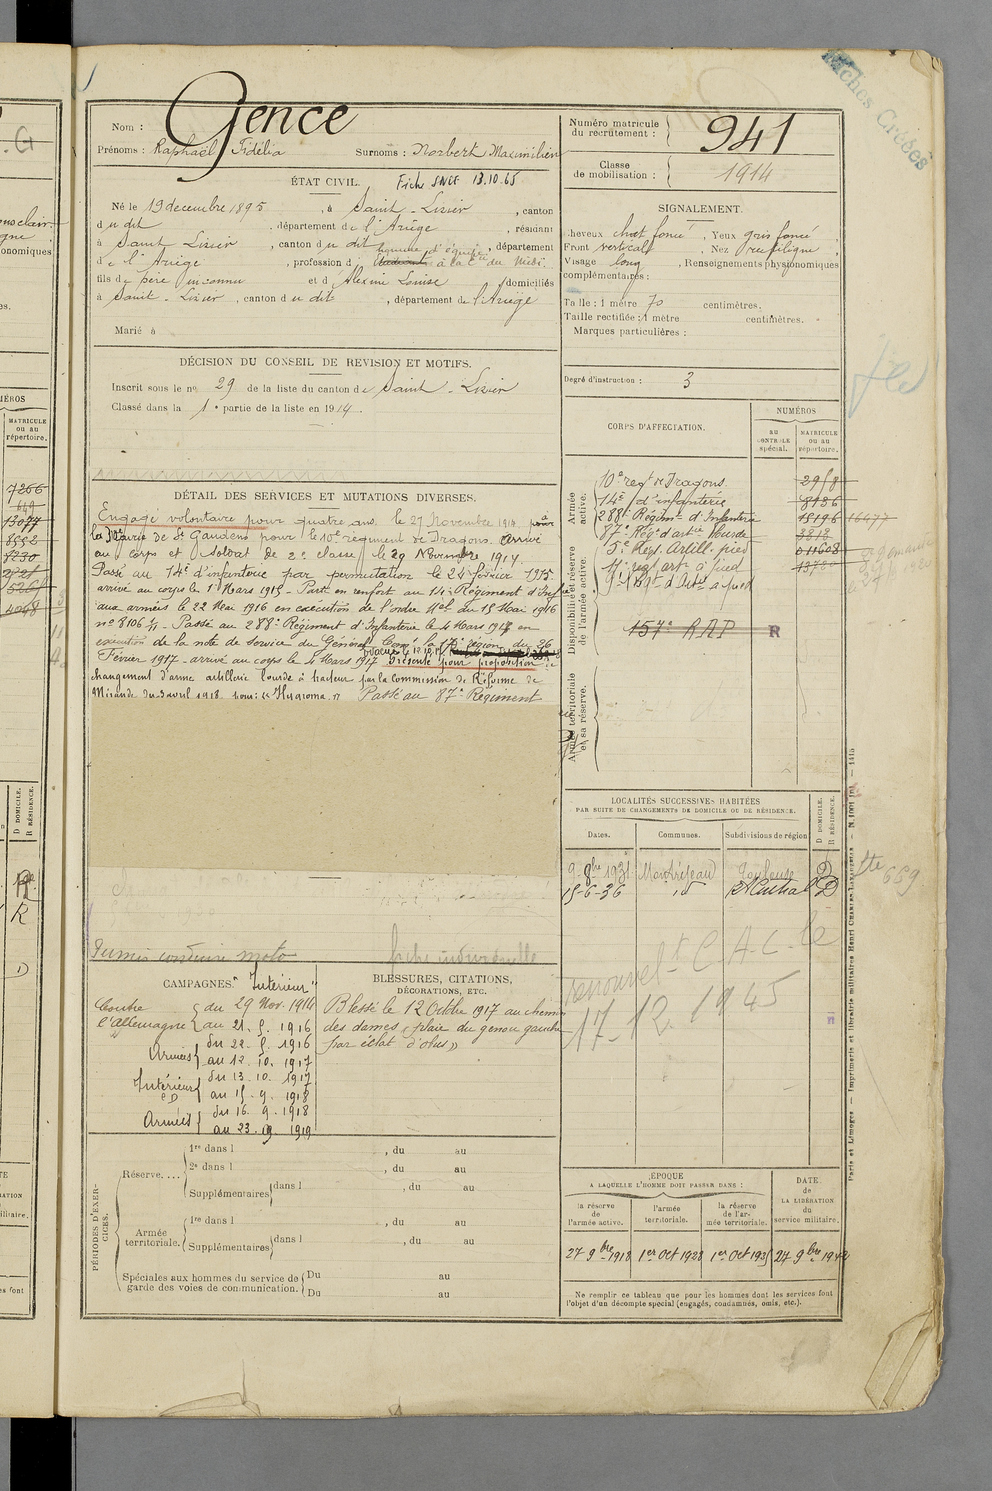 Fiches Créées
Nom : Gence
Prénoms : Raphaël Fidélia Surnoms : Norbert Maximilien
Numéro matricule du recrutement : 941
Classe de mobilisation : 1914
ÉTAT CIVIL. Fiche SNCF 13.10.65
Né le 19 decembre 1895, à Saint-Lizier, canton
du dit, département de l'Ariège, résidant
à Saint Lizier, canton du dit, département
de l'Ariège, profession d Etudiant homme d'équipe à la Cie du Midi.
fils de père inconnu et d Alexine Louise domiciliés
à Saint-Lizier, canton du dit, département de l'Ariège
Marié à
SIGNALEMENT.
Cheveux chat foncé, Yeux gris foncé
Front vertical, Nez
Visage long, Renseignements physionomiques
complémentaires :
Taille : 1 mètre 70 centimètres.
Taille rectifiée : 1 mètre centimètres.
Marques particulières :
Degré d'instruction : 3
DÉCISION DU CONSEIL DE REVISION ET MOTIFS.
Inscrit sous le no 29 de la liste du canton de Saint-Lizier
Classé dans la 1e partie de la liste en 1914.
DÉTAIL DES SERVICES ET MUTATIONS DIVERSES.
Engagé volontaire pour quatre ans. le 27 Novembre 1914 à
la Mairie de St Gaudens pour le 10e régiment de Dragons. Arrivé
au corps et soldat de 2e classe le 29 Novembre 1914.
Passé au 14e d'infanterie par permutation le 24 février 1915.
arrivé au corps le 1 Mars 1915 - Parti en renfort au 14e Régiment d'Inf
aux armées le 22 Mai 1916 en exécution de l'ordre Mel du 15 Mai 1916
no 8106 - Passé au 288e Régiment d'Infanterie le 4 Mars 1917 en
exécution de la note de service du Général Comt la 17e région du 26
Février 1917 - arrivé au corps le 4 Mars 1917 Présenté pour proposition
changement d'arme artillerie lourde à tracteur par la Commission de Réforme de
Mirande du 3 avril 1918. pour : "Hygroma." Passé au 87e Régiment
Permis conduire moto fiche individuelle
CORPS D'AFFECTATION.
NUMÉROS
au contrôle spécial.
MATRICULE ou au répertoire.
Armée active.
Disponibilité et réserve de l'armée active.
Armée territoriale et sa réserve.
10e regt de Dragons 2958
14e d'infanterie 8136
288e Régimt d'Infanterie 15196 16477
87e Régt d'artie lourde 3818
5e Régt. Artill. pied 011608
157e RAP R
LOCALITÉS SUCCESSIVES HABITÉES
PAR SUITE DE CHANGEMENTS DE DOMICILE OU DE RÉSIDENCE.
Dates. Communes. Subdivisions de région
D DOMICILE. R RÉSIDENCE.
9-8bre 1931 Montréjeau Toulouse D
15-6-36 id D
renouvelt C.A.C. le
17-12 1945
CAMPAGNES. "Intérieur"
Contre l'Allemagne
du 29 Nov. 1914
au 21. 5. 1916
Armées
du 22. 5. 1916
au 12. 10. 1917
Intérieur CD
du 13. 10. 1917
au 15. 9. 1918
Armées
du 16. 9. 1918
au 23. 9. 1919
BLESSURES, CITATIONS,
DÉCORATIONS, ETC.
Blessé le 12 Octbre 1917 au chemin
des dames "plaie du genou gauche
par éclat d'obus"
PÉRIODES D'EXERCICES.
Réserve....
1re dans l , du au
2e dans l , du au
Supplémentaires dans l , du au
Armée territoriale.
1re dans l , du au
Supplémentaires dans l , du au
Spéciales aux hommes du service de garde des voies de communication.
Du au
Du au
ÉPOQUE
A LAQUELLE L'HOMME DOIT PASSER DANS :
la réserve de l'armée active. l'armée territoriale. la réserve de l'armée territoriale.
DATE DE LA LIBÉRATION du service militaire.
27 9bre 1918 1er Oct 1928 1er Oct 193 27 9bre 194
Ne remplir ce tableau que pour les hommes dont les services font
l'objet d'un décompte spécial (engagés, condamnés, omis, etc.).
Paris et Limoges — Imprimerie et librairie militaires Henri CHARLES-LAVAUZELLE